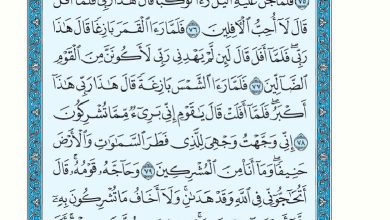 فَلَمَّا جَنَّ عَلَيْهِ الَّيْلُ رَءَا كَوْكَبًا قَالَ هَٰذَا رَبِّي فَلَمَّا أَفَلَ
قَالَ لَا أُحِبُّ الْأَفِلِينَ ٧٦ فَلَمَّا رَءَا الْقَمَرَ بَازِغًا قَالَ هَٰذَا
رَبِّي فَلَمَّا أَفَلَ قَالَ لَئِن لَّمْ يَهْدِنِي رَبِّي لَأَكُونَنَّ مِنَ الْقَوْمِ
الضَّالِّينَ ٧٧ فَلَمَّا رَءَا الشَّمْسَ بَازِغَةً قَالَ هَٰذَا رَبِّي هَٰذَا
أَكْبَرُ فَلَمَّا أَفَلَتْ قَالَ يَٰقَوْمِ إِنِّي بَرِيءٌ مِّمَّا تُشْرِكُونَ
٧٨ إِنِّي وَجَّهْتُ وَجْهِيَ لِلَّذِي فَطَرَ السَّمَٰوَٰتِ وَالْأَرْضَ
حَنِيفًا وَمَا أَنَا مِنَ الْمُشْرِكِينَ ٧٩ وَحَاجَّهُ قَوْمُهُ قَالَ
أَتُحَٰجُّونِّي فِي اللَّهِ وَقَدْ هَدَىٰنِ وَلَا أَخَافُ مَا تُشْرِكُونَ بِهِ